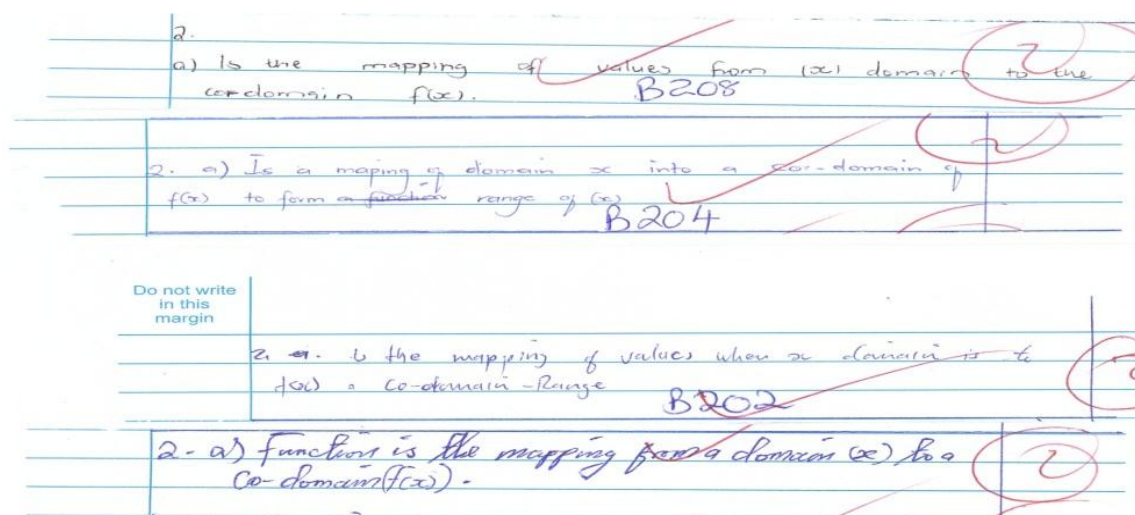 2.
a) Is the mapping of values from (x) domain to the
co-domain f(x).
B208
2
2. a) Is a maping of domain x into a co-domain of
f(x) to form a function range of (x)
B204
2
Do not write
in this
margin
2 a. is the mapping of values when x domain is to
f(x) a co-domain - Range
B202
2 - a) function is the mapping from a domain (x) to a
Co-domain (f(x)).
2